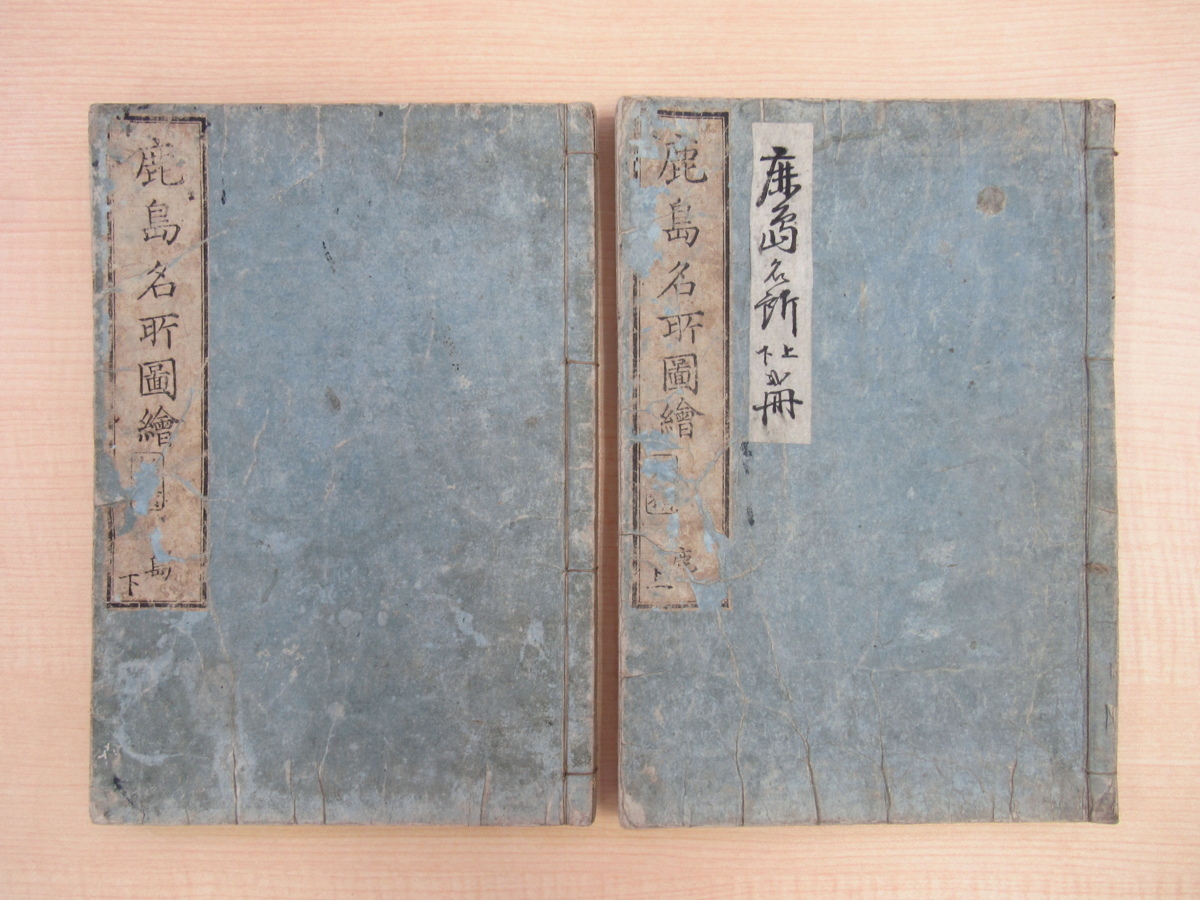 鹿島名所圖繪
上
鹿島名所
上
下
冊
鹿島名所圖繪
下